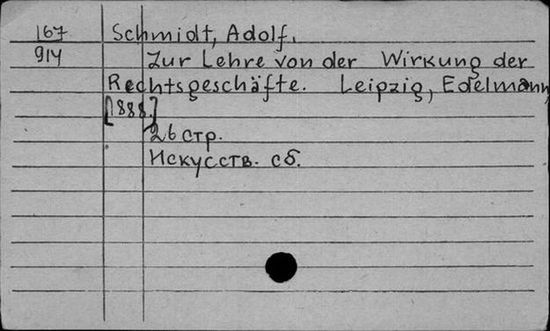 167 Schmidt, Adolf.
914 Zur Lehre von der Wirkung der
Rechtsgeschäfte. Leipzig, Edelmann,
[1888.]
26 стр.
Искусств. сб.